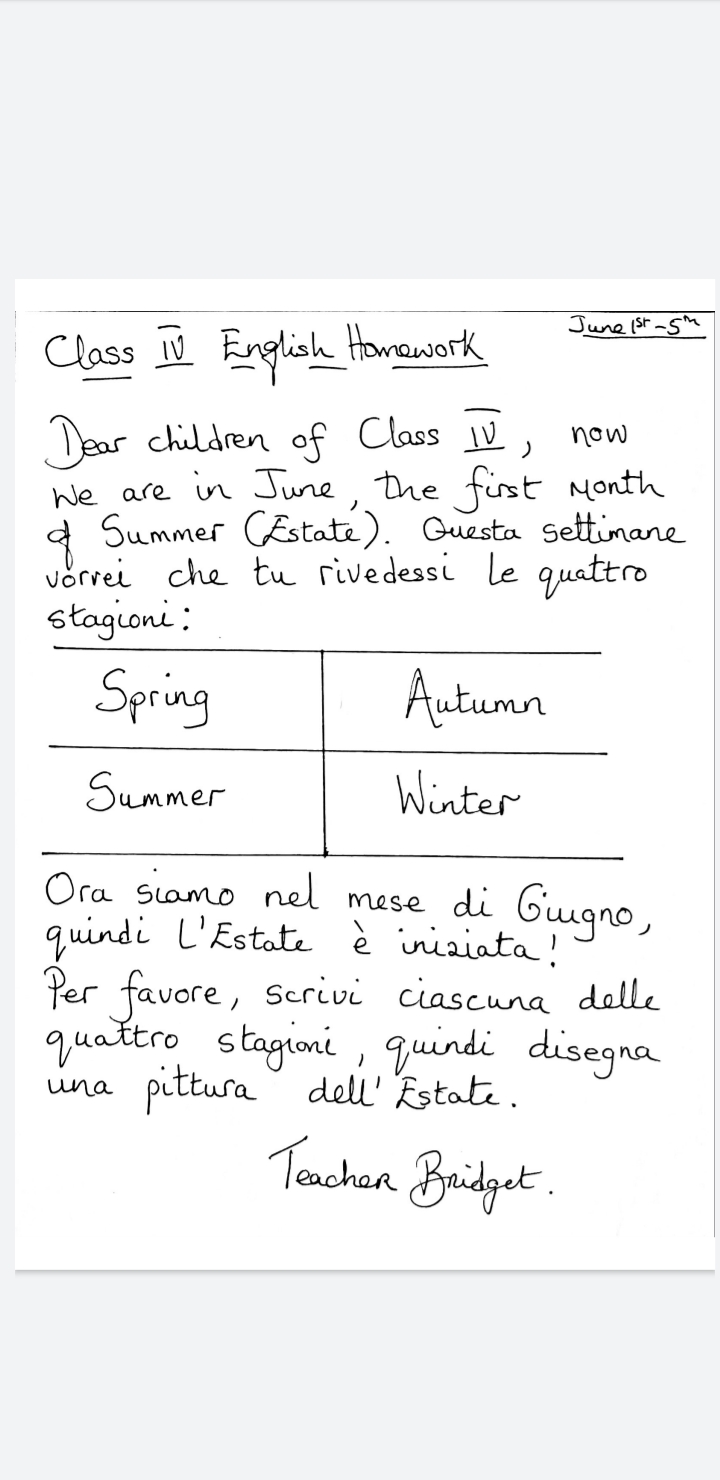 June 1st - 5th
Class IV English Homework
Dear children of Class IV, now
we are in June, the first Month
of Summer (Estate). Questa settimane
vorrei che tu rivedessi le quattro
stagioni:
Spring Autumn
Summer Winter
Ora siamo nel mese di Giugno,
quindi L'Estate è iniziata!
Per favore, scrivi ciascuna delle
quattro stagioni, quindi disegna
una pittura dell'Estate.
Teacher Bridget.